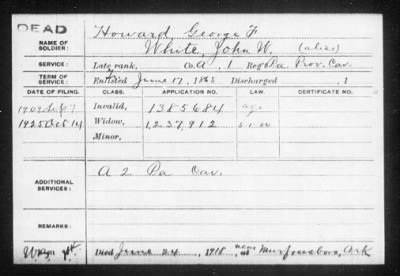 DEAD
NAME OF SOLDIER: Howard, George F
White, John W. (alias)
SERVICE: Late rank, Co. A, 1 Reg't Pa. Prov. Cav.
TERM OF SERVICE: Enlisted June 17, 1865 Discharged , 1
DATE OF FILING. CLASS. APPLICATION NO. LAW. CERTIFICATE NO.
Invalid, 1385684 age
1925 Oct 14 Widow, 1,237,912
Minor,
ADDITIONAL SERVICES: A 2 Pa Cav.
REMARKS:
Died June 24, 1918, near Murfreesboro, Ark